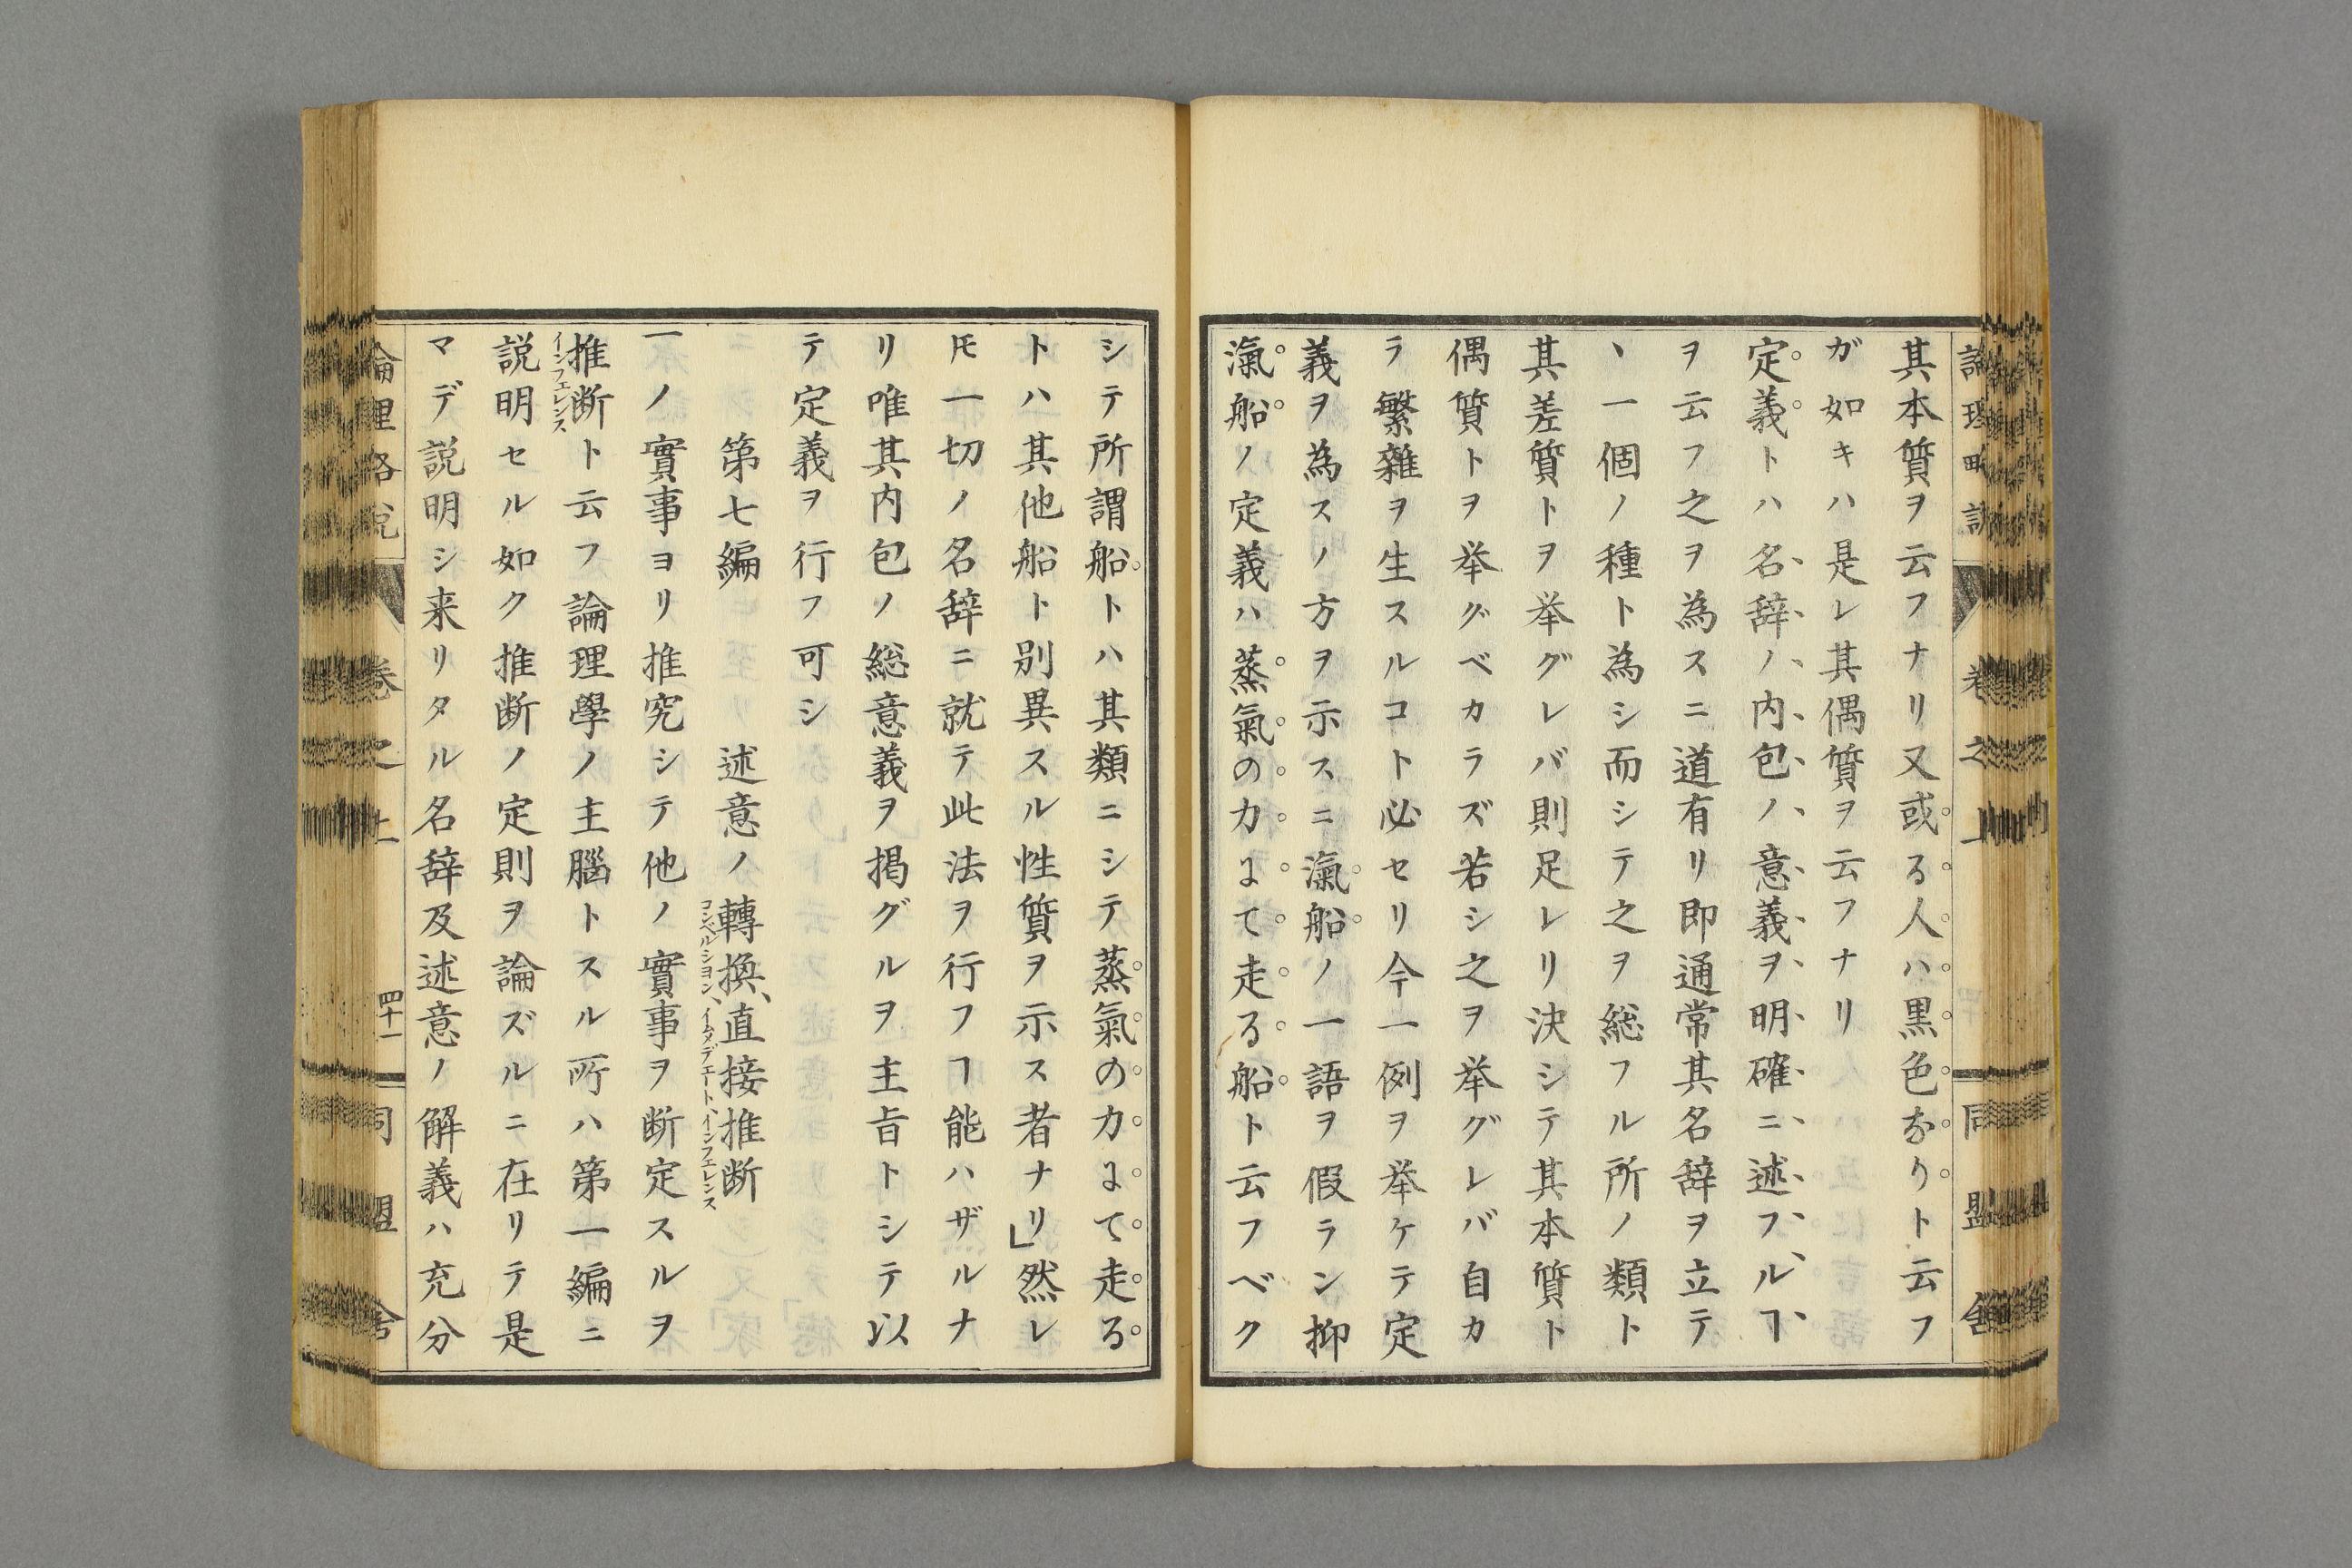 其本質ヲ云フナリ又或る人ハ黒色なりト云フ
ガ如キハ是レ其偶質ヲ云フナリ
定義トハ名辞ノ内包ノ意義ヲ明確ニ述フルヿ
ヲ云フ之ヲ為スニ道有リ即通常其名辞ヲ立テ
、一個ノ種ト為シ而シテ之ヲ総フル所ノ類ト
其差質トヲ挙グレバ則足レリ決シテ其本質ト
偶質トヲ挙グベカラズ若シ之ヲ挙グレバ自カ
ラ繁雜ヲ生スルコト必セリ今一例ヲ挙ケテ定
義ヲ為スノ方ヲ示スニ滊船ノ一語ヲ假ラン抑
滊船ノ定義ハ蒸氣の力にて走る船ト云フベク
シテ所謂船トハ其類ニシテ蒸氣の力にて走る
トハ其他船ト別異スル性質ヲ示ス者ナリ」然レ
𪜈一切ノ名辞ニ就テ此法ヲ行フヿ能ハザルナ
リ唯其内包ノ総意義ヲ掲グルヲ主旨トシテ以
テ定義ヲ行フ可シ
第七編　述意ノ轉換、直接推断
コンベルシヨン、イムメデエート、インフェレンス
一ノ實事ヨリ推究シテ他ノ實事ヲ断定スルヲ
推断ト云フ論理學ノ主腦トスル所ハ第一編ニ
インフェレンス
説明セル如ク推断ノ定則ヲ論ズルニ在リテ是
マデ説明シ来リタル名辞及述意ノ解義ハ充分
論理略説　卷之上　四十一　同盟舎